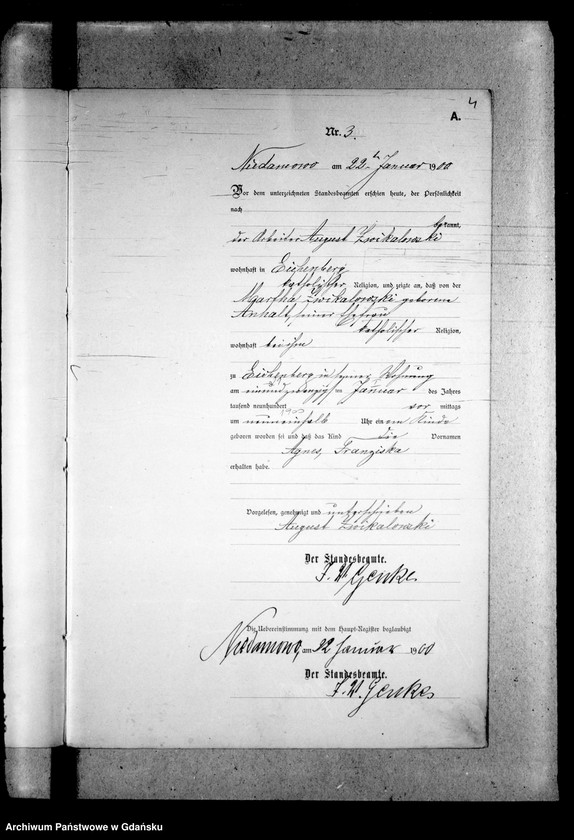 4
A.
Nr. 3.
Niedamowo am 22ten Januar 1900
Vor dem unterzeichneten Standesbeamten erschien heute, der Persönlichkeit
nach
bekannt,
der Arbeiter August Zwikalowski
wohnhaft in Eichenberg
katholischer Religion, und zeigte an, daß von der
Martha Zwikalowski geborene
Anhalt, seiner Ehefrau
katholischer Religion,
wohnhaft bei ihm
zu Eichenberg in seiner Wohnung
am einundzwanzigsten Januar des Jahres
tausend neunhundert
1900 vor mittags
um neuneinhalb Uhr ein Kind
geboren worden sei und daß das Kind die Vornamen
Agnes, Franziska
erhalten habe.
Vorgelesen, genehmigt und unterschrieben
August Zwikalowski
Der Standesbeamte.
F. W. Genke
Die Uebereinstimmung mit dem Haupt-Register beglaubigt
Niedamowo, am 22 Januar 1900
Der Standesbeamte.
F. W. Genke
Archiwum Państwowe w Gdańsku